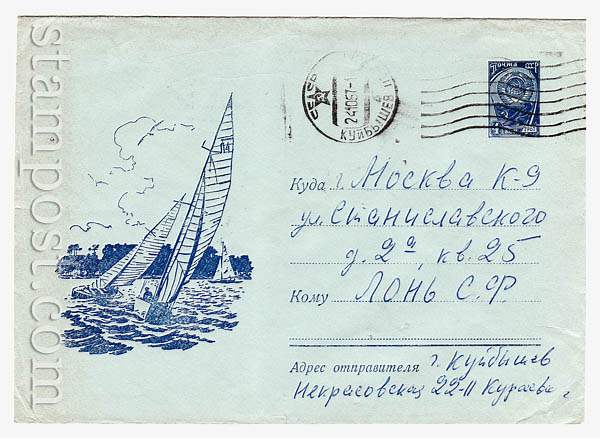 stampost.com
ПОЧТА СССР
241067-1
КУЙБЫШЕВ
П4
Куда г. Москва К-9
ул. Станиславского
д. 2а, кв. 25
Кому Лонь С. Ф.
Адрес отправителя г. Куйбышев
Некрасовская 22-11 Кураева